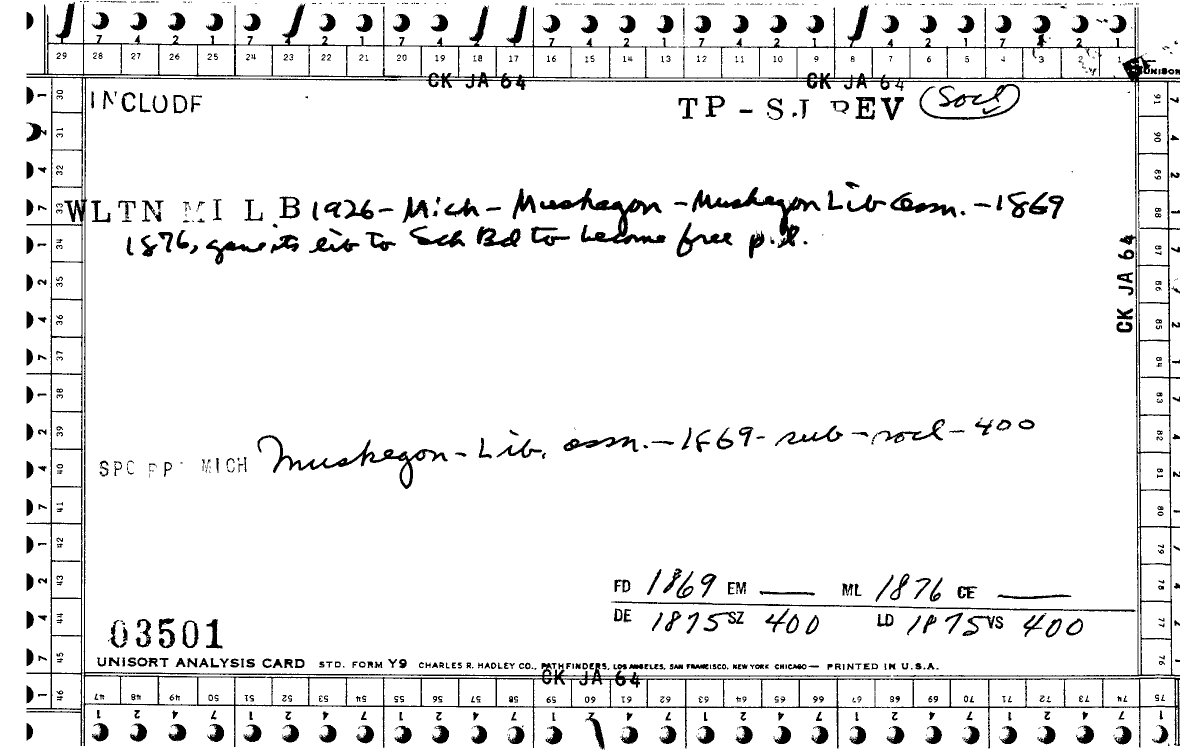 7 4 2 1 7 4 2 1 7 4 2 1 7 4 2 1 7 4 2 1 7 4 2 1 7 4 2 1
29 28 27 26 25 24 23 22 21 20 19 18 17 16 15 14 13 12 11 10 9 8 7 6 5 4 3 2 1
CK JA 64 CK JA 64 UNISORT
INCLUDE TP - SJ REV (Socl)
WLTN MI L B 1926 - Mich - Muskegon - Muskegon Lib assn. - 1869
1876, gave its lib to Sch Bd to become free p.l.
CK JA 64
SPC RP MICH Muskegon - Lib. assn. - 1869 - sub - socl - 400
FD 1869 EM ___ ML 1876 CE ___
DE 1875 SZ 400 LD 1875 VS 400
03501
UNISORT ANALYSIS CARD STD. FORM Y9 CHARLES R. HADLEY CO., PATHFINDERS, LOS ANGELES, SAN FRANCISCO, NEW YORK CHICAGO — PRINTED IN U.S.A.
CK JA 64
30 31 32 33 34 35 36 37 38 39 40 41 42 43 44 45 46
47 48 49 50 51 52 53 54 55 56 57 58 59 60 61 62 63 64 65 66 67 68 69 70 71 72 73 74 75
91 90 89 88 87 86 85 84 83 82 81 80 79 78 77 76